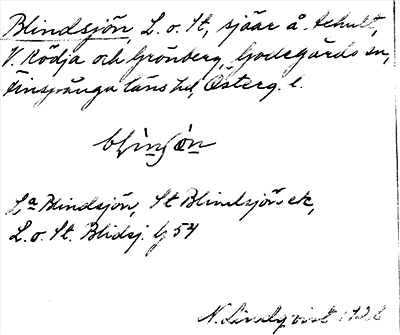 Blindsjön, L. o. St, sjöar å Schult,
V. Rödja och Grönberg, Godegårds sn,
Finspånga läns hd, Österg. l.
blinsön
L:a Blindsjön, St Blindsjön ek,
L. o. St. Blidsj. bg 54
N. Lindqvist 1928